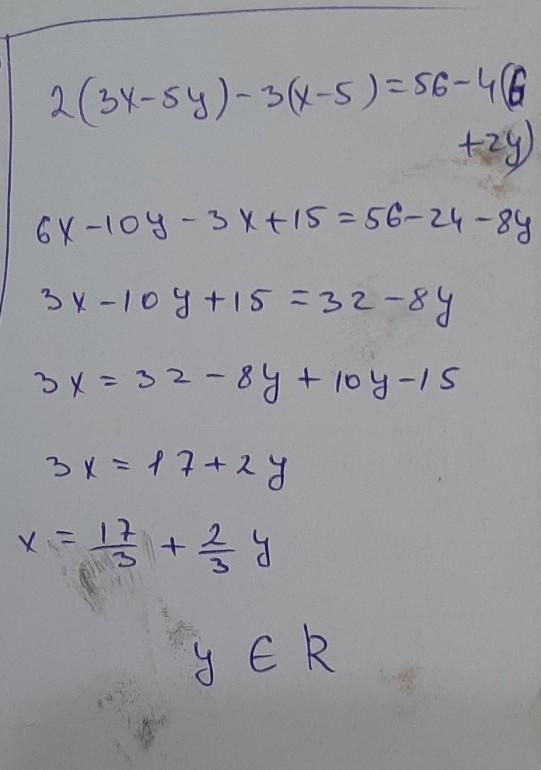 2(3x-5y)-3(x-5)=56-4(6
+2y)
6x-10y-3x+15=56-24-8y
3x-10y+15=32-8y
3x=32-8y+10y-15
3x=17+2y
x=17/3+2/3y
y∈R